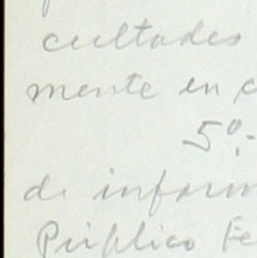 cultades
mente en
5º.-
de inform
Público Fe